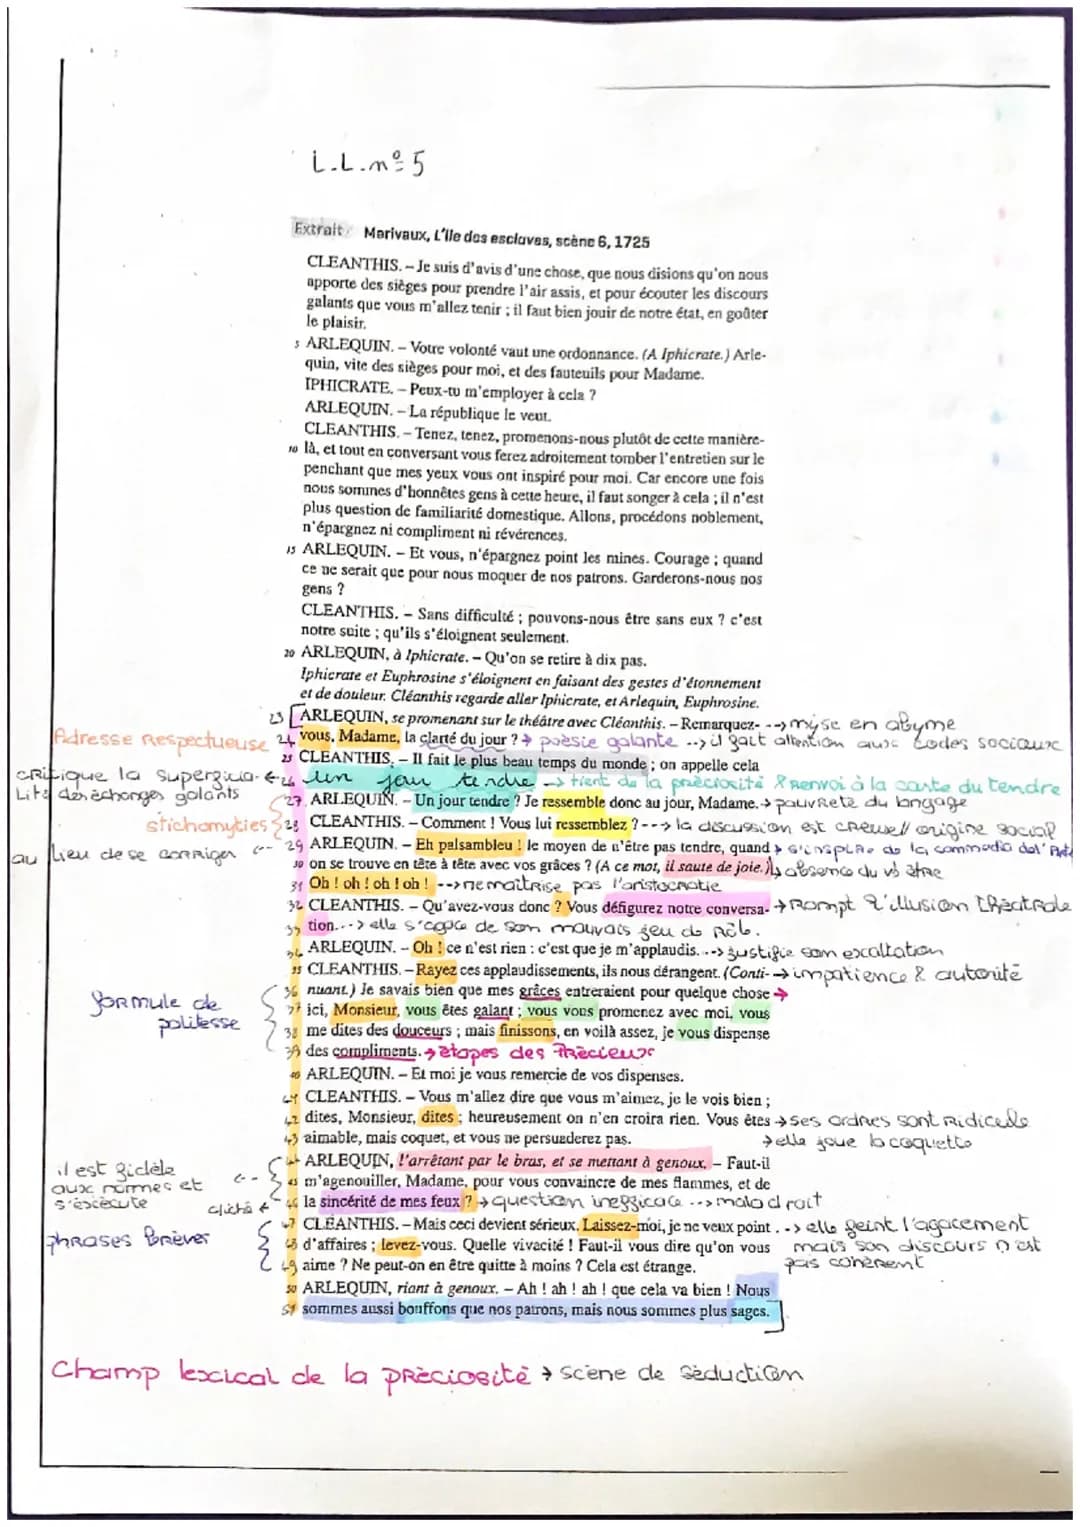 L.L.nº5
Extrait Marivaux, L'île des esclaves, scène 6, 1725
CLEANTHIS. – Je suis d'avis d'une chose, que nous disions qu'on nous
apporte des sièges pour prendre l'air assis, et pour écouter les discours
galants que vous m'allez tenir ; il faut bien jouir de notre état, en goûter
le plaisir.
5 ARLEQUIN. – Votre volonté vaut une ordonnance. (A Iphicrate.) Arle-
quin, vite des sièges pour moi, et des fauteuils pour Madame.
IPHICRATE. – Peux-tu m'employer à cela ?
ARLEQUIN. – La république le veut.
CLEANTHIS. – Tenez, tenez, promenons-nous plutôt de cette manière-
10 là, et tout en conversant vous ferez adroitement tomber l'entretien sur le
penchant que mes yeux vous ont inspiré pour moi. Car encore une fois
nous sommes d'honnêtes gens à cette heure, il faut songer à cela ; il n'est
plus question de familiarité domestique. Allons, procédons noblement,
n'épargnez ni compliment ni révérences.
15 ARLEQUIN. – Et vous, n'épargnez point les mines. Courage ; quand
ce ne serait que pour nous moquer de nos patrons. Garderons-nous nos
gens ?
CLEANTHIS. – Sans difficulté ; pouvons-nous être sans eux ? c'est
notre suite ; qu'ils s'éloignent seulement.
20 ARLEQUIN, à Iphicrate. – Qu'on se retire à dix pas.
Iphicrate et Euphrosine s'éloignent en faisant des gestes d'étonnement
et de douleur. Cléanthis regarde aller Iphicrate, et Arlequin, Euphrosine.
23 [ARLEQUIN, se promenant sur le théâtre avec Cléanthis. – Remarquez- --> myse en abyme
Adresse Respectueuse 24 vous, Madame, la clarté du jour ? → poèsie galante --> il fait attention aux codes sociaux
25 CLEANTHIS. – Il fait le plus beau temps du monde ; on appelle cela
critique la superficia- ← 26 un jour tendre → tient de la préciosité & renvoi à la carte du tendre
Lité des échanges galants 27 ARLEQUIN. – Un jour tendre ? Je ressemble donc au jour, Madame. → pauvreté du langage
stichomyties 28 CLEANTHIS. – Comment ! Vous lui ressemblez ? --> la discussion est creuse/ origine social
au lieu de se corriger <-- 29 ARLEQUIN. – Eh palsambleu ! le moyen de n'être pas tendre, quand → s'inspire de la commedia del'Arte
30 on se trouve en tête à tête avec vos grâces ? (A ce mot, il saute de joie.) ↳ absence du vb être
31 Oh ! oh ! oh ! oh ! --> ne maîtrise pas l'aristocratie
32 CLEANTHIS. – Qu'avez-vous donc ? Vous défigurez notre conversa- → Rompt l'illusion théatrale
33 tion. --> elle s'agace de son mauvais jeu de rôle.
34 ARLEQUIN. – Oh ! ce n'est rien : c'est que je m'applaudis. --> justifie son excaltation
35 CLEANTHIS. – Rayez ces applaudissements, ils nous dérangent. (Conti- → impatience & autorité
36 nuant.) Je savais bien que mes grâces entreraient pour quelque chose →
formule de politesse 37 ici, Monsieur, vous êtes galant ; vous vous promenez avec moi, vous
38 me dites des douceurs ; mais finissons, en voilà assez, je vous dispense
39 des compliments. → étapes des Précieux
40 ARLEQUIN. – Et moi je vous remercie de vos dispenses.
41 CLEANTHIS. – Vous m'allez dire que vous m'aimez, je le vois bien ;
42 dites, Monsieur, dites ; heureusement on n'en croira rien. Vous êtes → ses ordres sont ridicule
43 aimable, mais coquet, et vous ne persuaderez pas. → elle joue la coquette
44 ARLEQUIN, l'arrêtant par le bras, et se mettant à genoux. – Faut-il
il est fidèle aux normes et s'éxécute <-- 45 m'agenouiller, Madame, pour vous convaincre de mes flammes, et de
cliché ← 46 la sincérité de mes feux ? → question inefficace --> maladroit
47 CLEANTHIS. – Mais ceci devient sérieux. Laissez-moi, je ne veux point --> elle feint l'agacement
phrases brèves 48 d'affaires ; levez-vous. Quelle vivacité ! Faut-il vous dire qu'on vous mais son discours n'est
49 aime ? Ne peut-on en être quitte à moins ? Cela est étrange. pas cohérent
50 ARLEQUIN, riant à genoux. – Ah ! ah ! ah ! que cela va bien ! Nous
51 sommes aussi bouffons que nos patrons, mais nous sommes plus sages.]
Champ lexical de la préciosité → scène de séduction